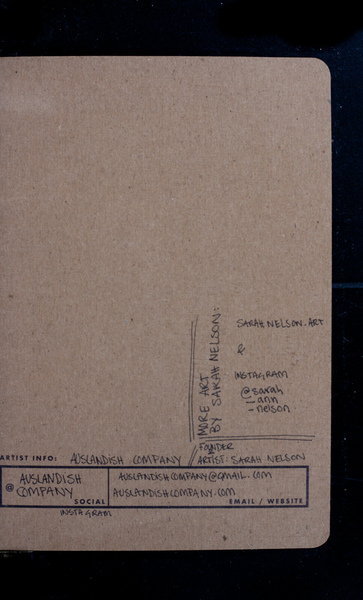 MORE ART
BY SARAH NELSON:
SARAH NELSON.ART
&
INSTAGRAM
@sarah
_ann
_nelson
FOUNDER
ARTIST INFO: AUSLANDISH COMPANY // ARTIST: SARAH NELSON
@ AUSLANDISH
COMPANY
SOCIAL
INSTAGRAM
AUSLANDISHCOMPANY@GMAIL.COM
AUSLANDISHCOMPANY.COM
EMAIL / WEBSITE